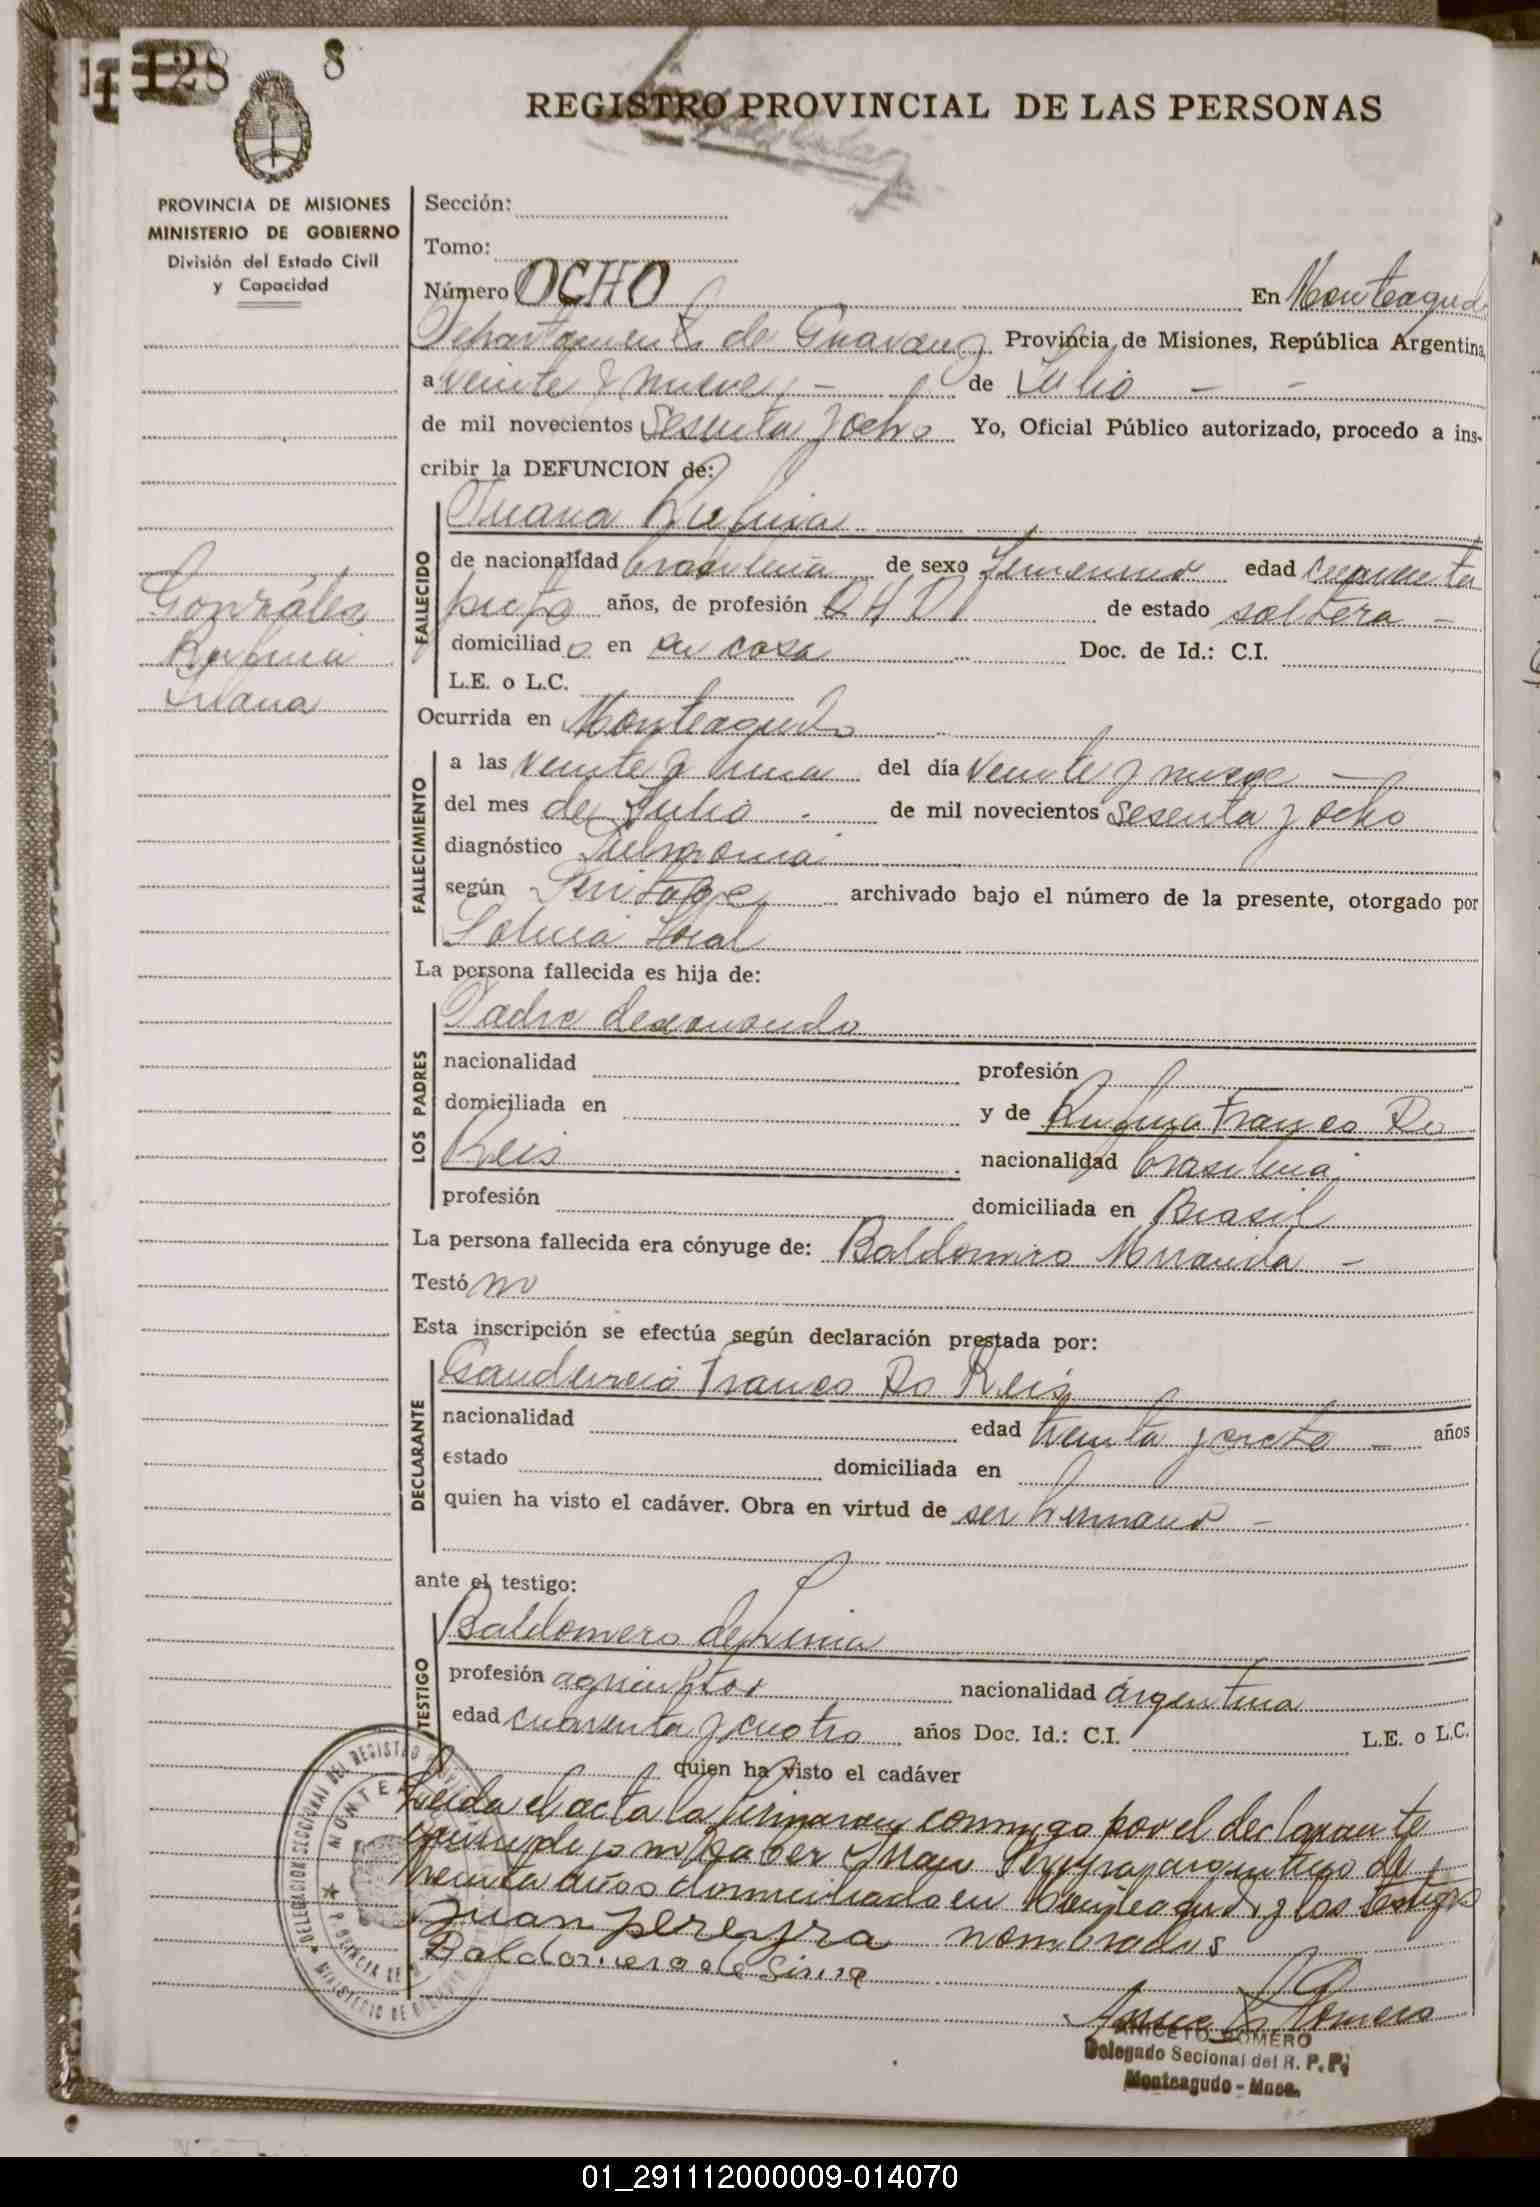 128 8
REGISTRO PROVINCIAL DE LAS PERSONAS
PROVINCIA DE MISIONES
MINISTERIO DE GOBIERNO
División del Estado Civil
y Capacidad
Sección:
Tomo:
Número OCHO En Monteagudo
Departamento de Guarany Provincia de Misiones, República Argentina,
a veinte y nueve de Julio
de mil novecientos sesenta y ocho Yo, Oficial Público autorizado, procedo a ins-
cribir la DEFUNCION de:
González
Rufina
Juana
FALLECIDO
Juana Rufina
de nacionalidad brasileña de sexo femenino edad cuarenta
años, de profesión Q.H.D. de estado soltera
domiciliado en su casa Doc. de Id.: C.I.
L.E. o L.C.
Ocurrida en Monteagudo
FALLECIMIENTO
a las veinte y una del día veinte y nueve
del mes de Julio de mil novecientos sesenta y ocho
diagnóstico Pulmonia
según Peritage archivado bajo el número de la presente, otorgado por
Policia Local
La persona fallecida es hija de:
LOS PADRES
Padre desconocido
nacionalidad profesión
domiciliada en y de Rufina Franco Do
Reis nacionalidad brasileña
profesión domiciliada en Brasil
La persona fallecida era cónyuge de: Baldomiro Miranda
Testó no
Esta inscripción se efectúa según declaración prestada por:
DECLARANTE
Franco Do Reis
nacionalidad edad treinta y años
estado domiciliada en
quien ha visto el cadáver. Obra en virtud de ser hermano
ante el testigo:
TESTIGO
Baldomero de Lima
profesión agricultor nacionalidad argentina
edad cuarenta y cuatro años Doc. Id.: C.I. L.E. o L.C.
quien ha visto el cadáver
Leida el acta la firmaron conmigo por el declarante
quien dijo no saber Juan Pereyra argentino de
treinta años domiciliado en Monteagudo y los testigos
Juan pereyra nombrados
Baldomero de Lima
Romero
ANICETO ROMERO
Delegado Secional del R. P. P.
Monteagudo - Mnes.
DELEGACION SECCIONAL DEL REGISTRO
01_291112000009-014070